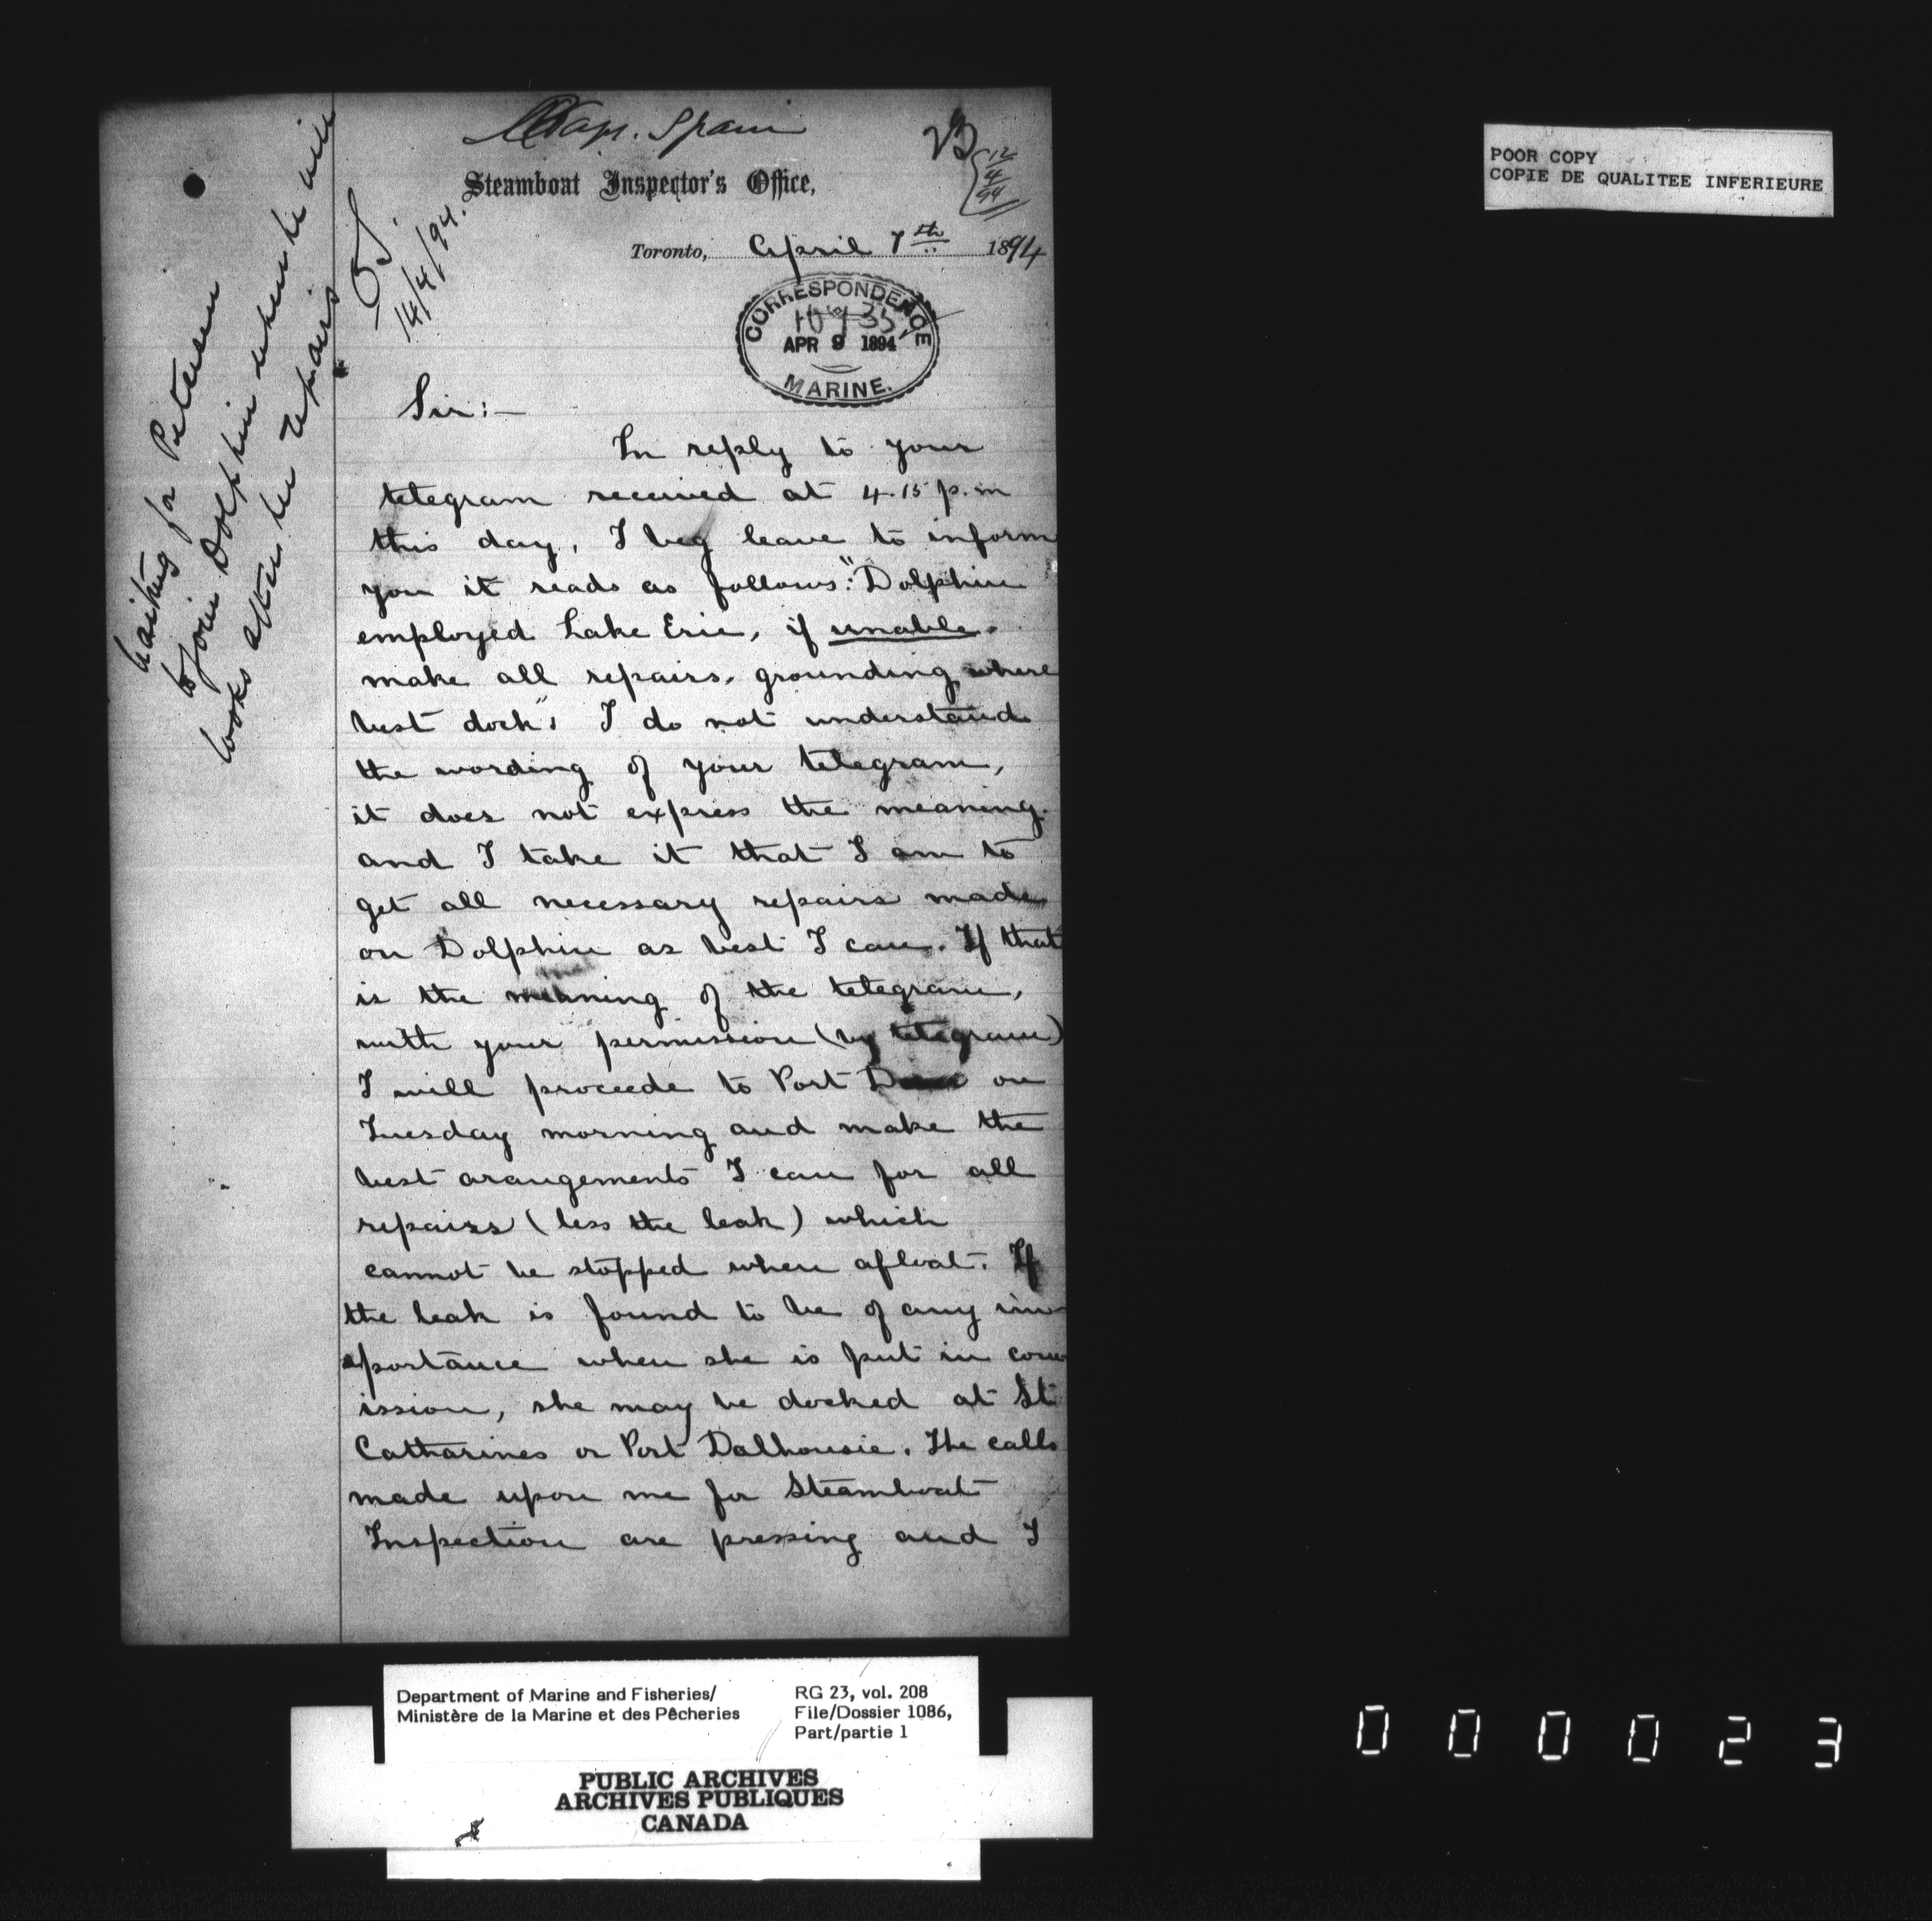 Capt. Spain
23
12/4/94
Steamboat Inspector's Office,
Toronto, April 7th 1894
O.S.
14/4/94.
CORRESPONDENCE
APR 9 1894
MARINE.
Waiting for Petersen
to join Dolphin when he will
look after her repairs
Sir:—
In reply to your
telegram received at 4.15 p.m
this day, I beg leave to inform
you it reads as follows: "Dolphin
employed Lake Erie, if unable
make all repairs, grounding where
best dock". I do not understand
the wording of your telegram,
it does not express the meaning.
and I take it that I am to
get all necessary repairs made
on Dolphin as best I can. If that
is the meaning of the telegram,
with your permission (by telegram)
I will proceede to Port on
Tuesday morning and make the
best arangements I can for all
repairs (less the leak) which
cannot be stopped when afloat. If
the leak is found to be of any im-
portance when she is put in com
ission, she may be docked at St
Catharines or Port Dalhousie. The calls
made upon me for Steamboat
Inspection are pressing and I
POOR COPY
COPIE DE QUALITEE INFERIEURE
Department of Marine and Fisheries/
Ministère de la Marine et des Pêcheries
RG 23, vol. 208
File/Dossier 1086,
Part/partie 1
PUBLIC ARCHIVES
ARCHIVES PUBLIQUES
CANADA
000023